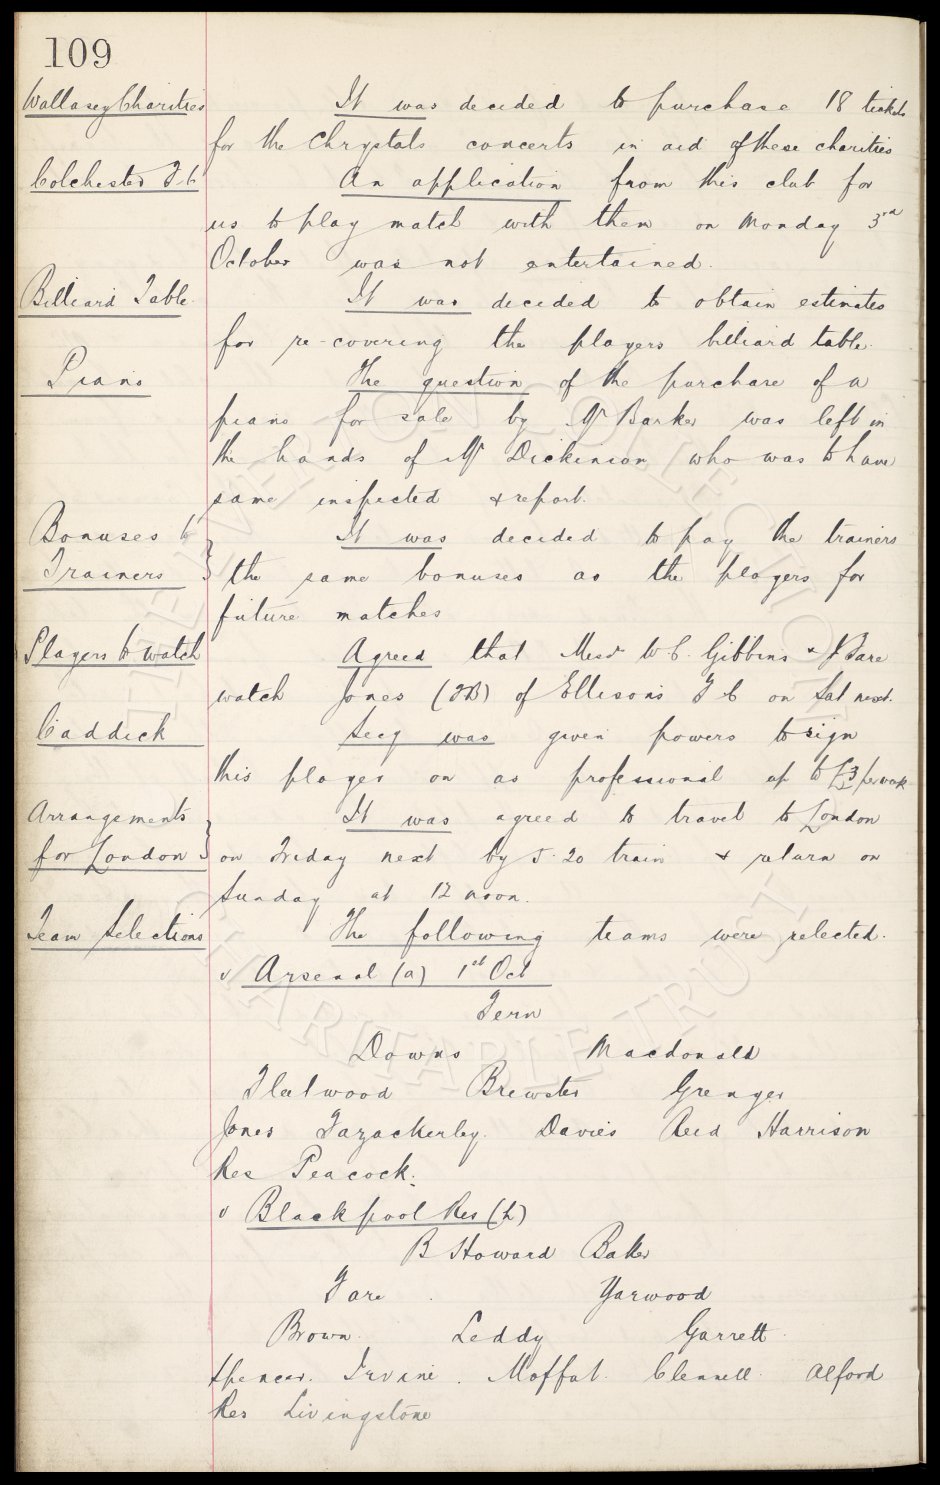 109
Wallasey Charities It was decided to purchase 18 tickets
for the Chrystals concerts in aid of these charities
Colchester F.C An application from this club for
us to play match with them on Monday 3rd
October was not entertained.
Billiard Table. It was decided to obtain estimates
for re-covering the players billiard table.
Piano The question of the purchase of a
piano for sale by Mr Barker was left in
the hands of Mr Dickinson who was to have
same inspected & report.
Bonuses to It was decided to pay the trainers
Trainers } the same bonuses as the players for
future matches
Players to watch Agreed that Messrs W.C. Gibbins & J Fare
watch Jones (FB) of Ellison's F C on Sat next.
Caddick Secy was given powers to sign
this player on as professional up to £3 per week
Arrangements It was agreed to travel to London
for London } on Friday next by 5.20 train & return on
Sunday at 12 noon.
Team Selections The following teams were selected.
v Arsenal (a) 1st Oct
Fern
Downs Macdonald
Fleetwood Brewster Grenyer
Jones Fazackerley. Davies Reid Harrison
Res Peacock.
v Blackpool Res (h)
B Howard Baker
Fare Yarwood
Brown. Leddy Garrett.
Spencer. Irvine. Moffat. Clennell. Alford
Res Livingstone
THE EVERTON COLLECTION
CHARITABLE TRUST